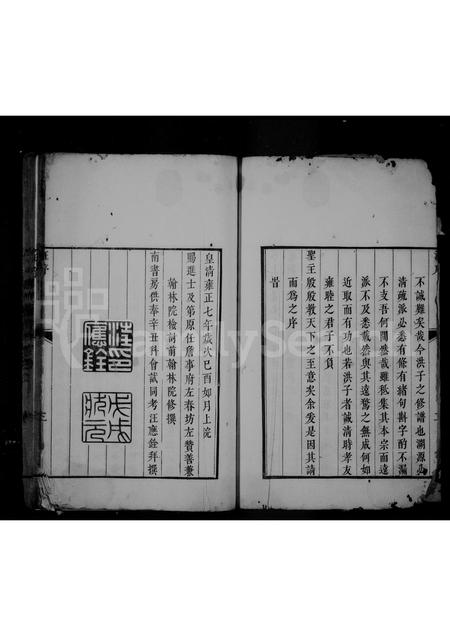 不誠難矣哉今洪子之修譜也溯源必
清疏派必悉有條有緒句斟字酌不漏
不支吾何間然哉雖秪集其本宗而遠
派不及悉載然與其遠騖之無成何如
近取而有功也若洪子者誠清時孝友
雍睦之君子不負
聖主殷殷教天下之至意矣余爰是因其請
而為之序
旹
皇清雍正七年歲次己酉如月上浣
賜進士及第原任詹事府左春坊左贊善兼
翰林院檢討前翰林院修撰
南書房供奉辛丑科會試同考汪應銓拜撰
汪印應銓
戊戌狀元